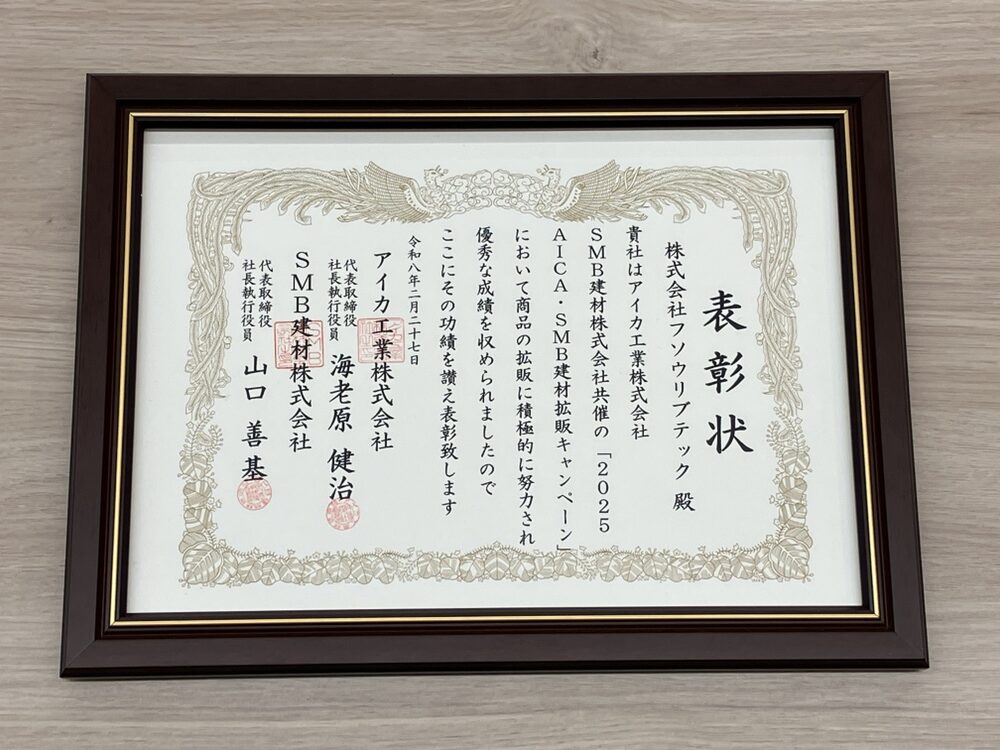 表彰状
株式会社フソウリブテック 殿
貴社はアイカ工業株式会社
SMB建材株式会社共催の「2025
AICA・SMB建材拡販キャンペーン」
において商品の拡販に積極的に努力され
優秀な成績を収められましたので
ここにその功績を讃え表彰致します
令和八年二月二十七日
アイカ工業株式会社
代表取締役
社長執行役員
海老原 健治
SMB建材株式会社
代表取締役
社長執行役員
山口 善基